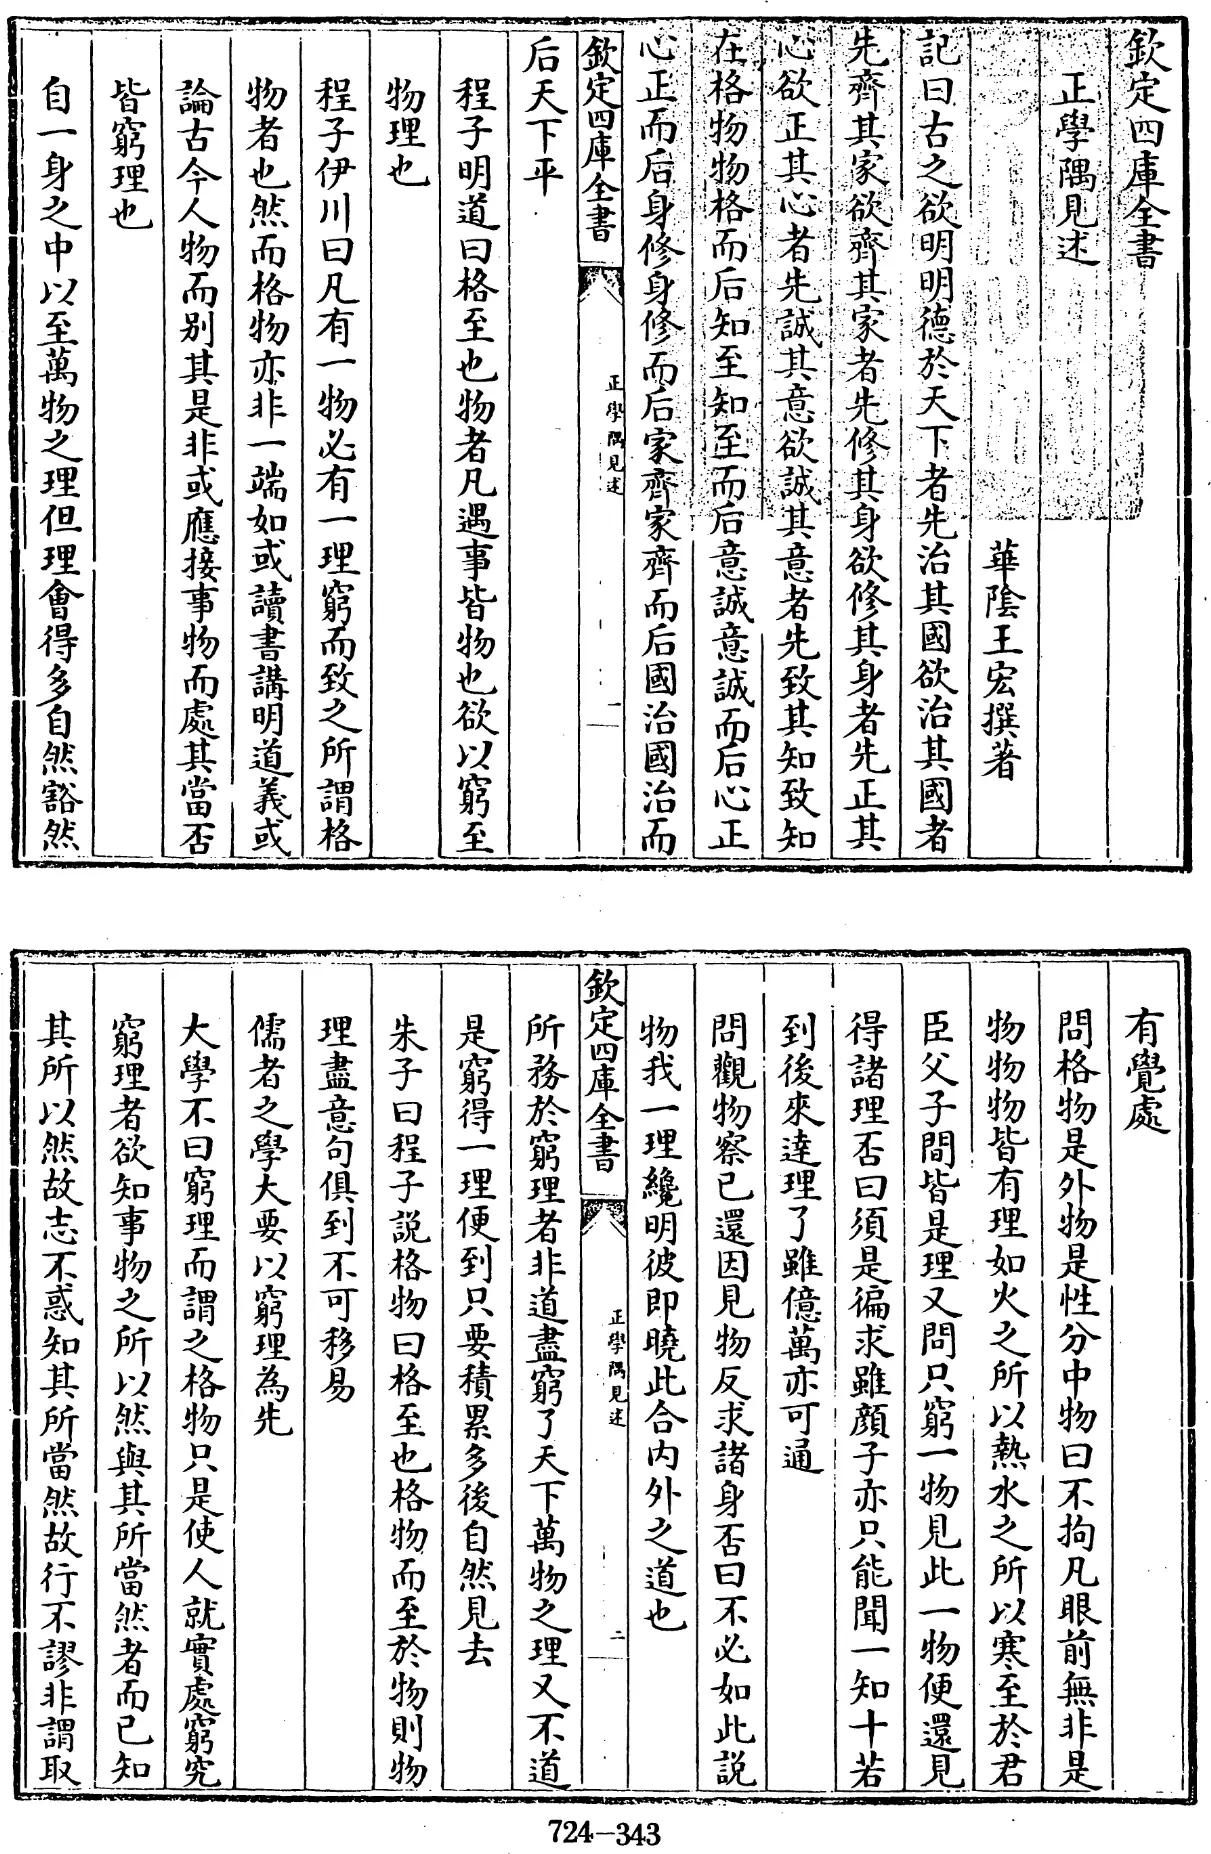 欽定四庫全書
正學隅見述
華陰王宏撰著
記曰古之欲明明德於天下者先治其國欲治其國者
先齊其家欲齊其家者先修其身欲修其身者先正其
心欲正其心者先誠其意欲誠其意者先致其知致知
在格物物格而后知至知至而后意誠意誠而后心正
心正而后身修身修而后家齊家齊而后國治國治而
欽定四庫全書
正學隅見述
一
后天下平
程子明道曰格至也物者凡遇事皆物也欲以窮至
物理也
程子伊川曰凡有一物必有一理窮而致之所謂格
物者也然而格物亦非一端如或讀書講明道義或
論古今人物而別其是非或應接事物而處其當否
皆窮理也
自一身之中以至萬物之理但理會得多自然豁然
有覺處
問格物是外物是性分中物曰不拘凡眼前無非是
物物物皆有理如火之所以熱水之所以寒至於君
臣父子間皆是理又問只窮一物見此一物便還見
得諸理否曰須是徧求雖顏子亦只能聞一知十若
到後來達理了雖億萬亦可通
問觀物察已還因見物反求諸身否曰不必如此説
物我一理纔明彼即曉此合內外之道也
欽定四庫全書
正學隅見述
二
所務於窮理者非道盡窮了天下萬物之理又不道
是窮得一理便到只要積累多後自然見去
朱子曰程子說格物曰格至也格物而至於物則物
理盡意句俱到不可移易
儒者之學大要以窮理為先
大學不曰窮理而謂之格物只是使人就實處窮究
窮理者欲知事物之所以然與其所當然者而已知
其所以然故志不惑知其所當然故行不謬非謂取
724-343